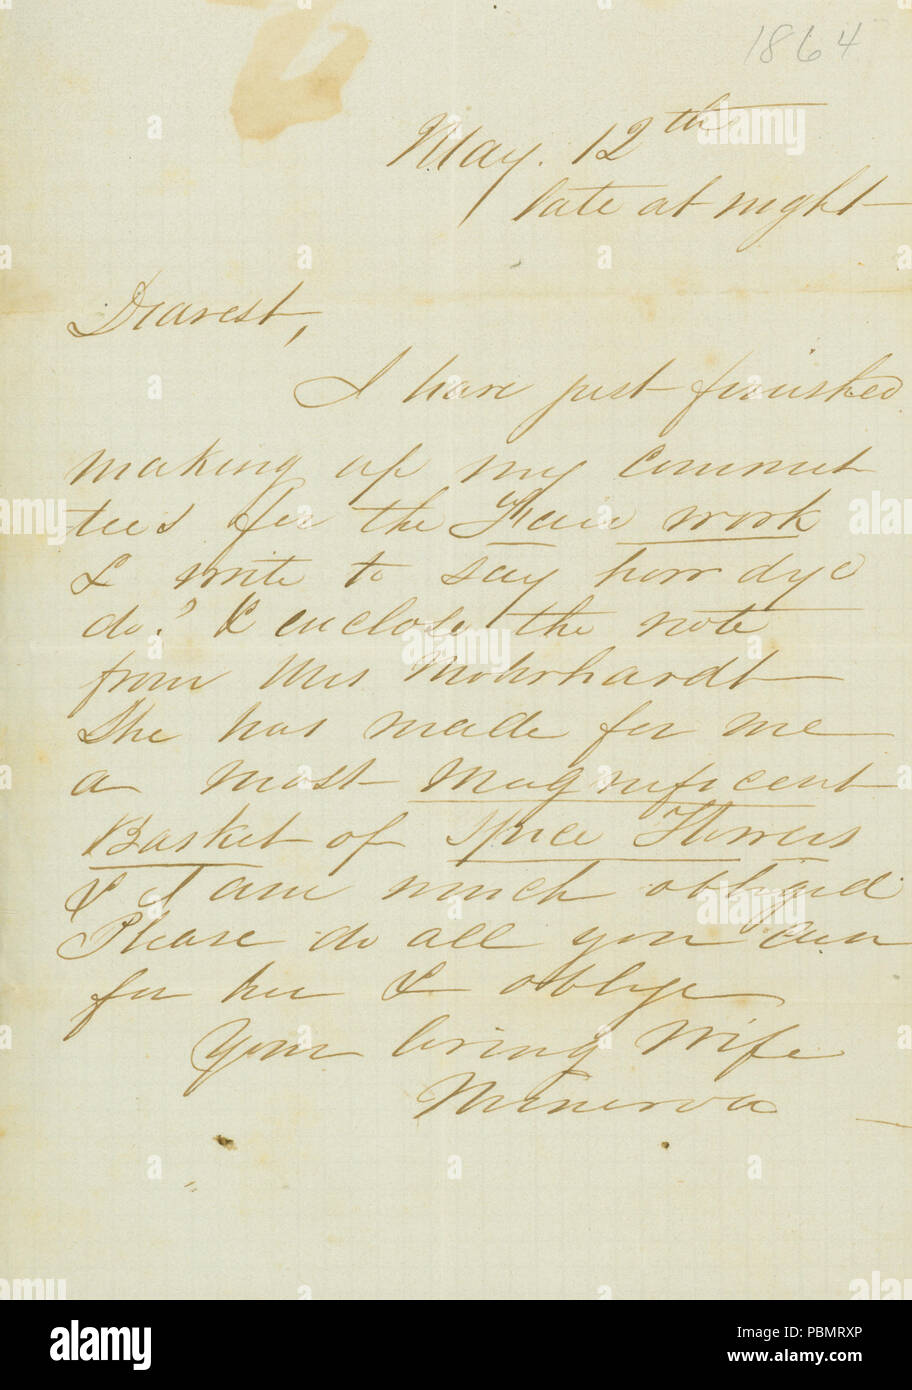 1864
May. 12th
late at night
Dearest,
I have just finished
making up my commit
tees for the Fair work
& write to say how dye
do? & enclose the note
from Mrs Mohrhardt
She has made for me
a most magnificent
Basket of Spice Flowers
& I am much obliged
Please do all you can
for her & oblige
Your loving Wife
Minerva
alamy
Image ID: PBMRXP
www.alamy.com